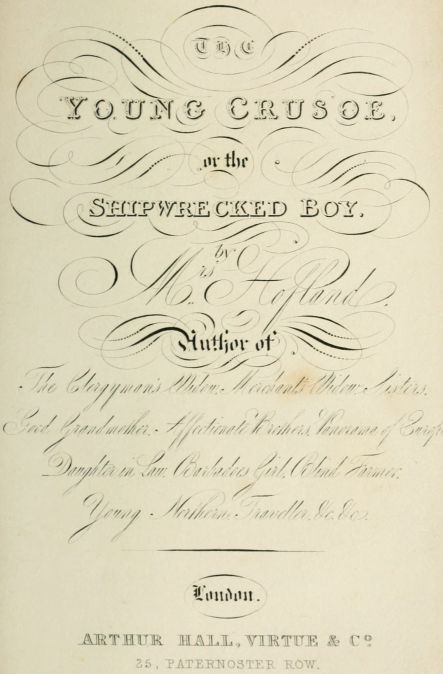 THE
YOUNG CRUSOE.
or the
SHIPWRECKED BOY.
by
Mrs. Hofland.
Author of
The Clergyman's Widow, Merchant's Widow, Sisters,
Good Grandmother, Affectionate Brothers, Panorama of Europe
Daughter in Law, Barbadoes Girl, Blind Farmer,
Young Northern Traveller, &c. &c.
London.
ARTHUR HALL, VIRTUE & Co
25, PATERNOSTER ROW.